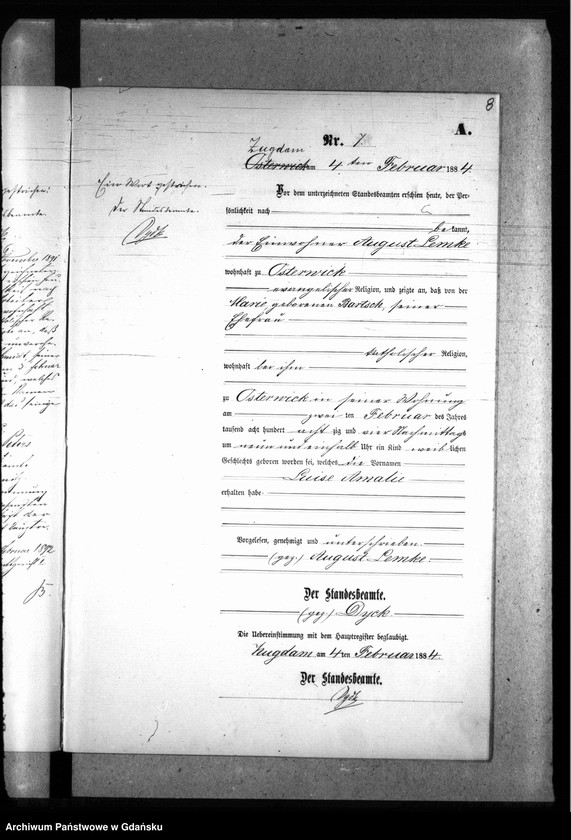 8
A.
Nr. 7.
Zugdam
Osterwick am 4. ten Februar 1884.
Ein Wort gestrichen.
Der Standesbeamte.
Vor dem unterzeichneten Standesbeamten erschien heute, der Per-
sönlichkeit nach
bekannt,
der Einwohner August Lemke
wohnhaft zu Osterwick
evangelischer Religion, und zeigte an, daß von der
Marie geborenen Bartsch, seiner
Ehefrau
katholischer Religion,
wohnhaft bei ihm
zu Osterwick in seiner Wohnung
am zwei ten Februar des Jahres
tausend acht hundert acht zig und vier Nachmittags
um neun und einhalb Uhr ein Kind weib lichen
Geschlechts geboren worden sei, welches die Vornamen
Luise Amalie
erhalten habe
Vorgelesen, genehmigt und unterschrieben
(gez.) August Lemke.
Der Standesbeamte.
(gez.) Dyck
Die Uebereinstimmung mit dem Hauptregister beglaubigt.
Zugdam am 4 ten Februar 1884.
Der Standesbeamte.
Archiwum Państwowe w Gdańsku